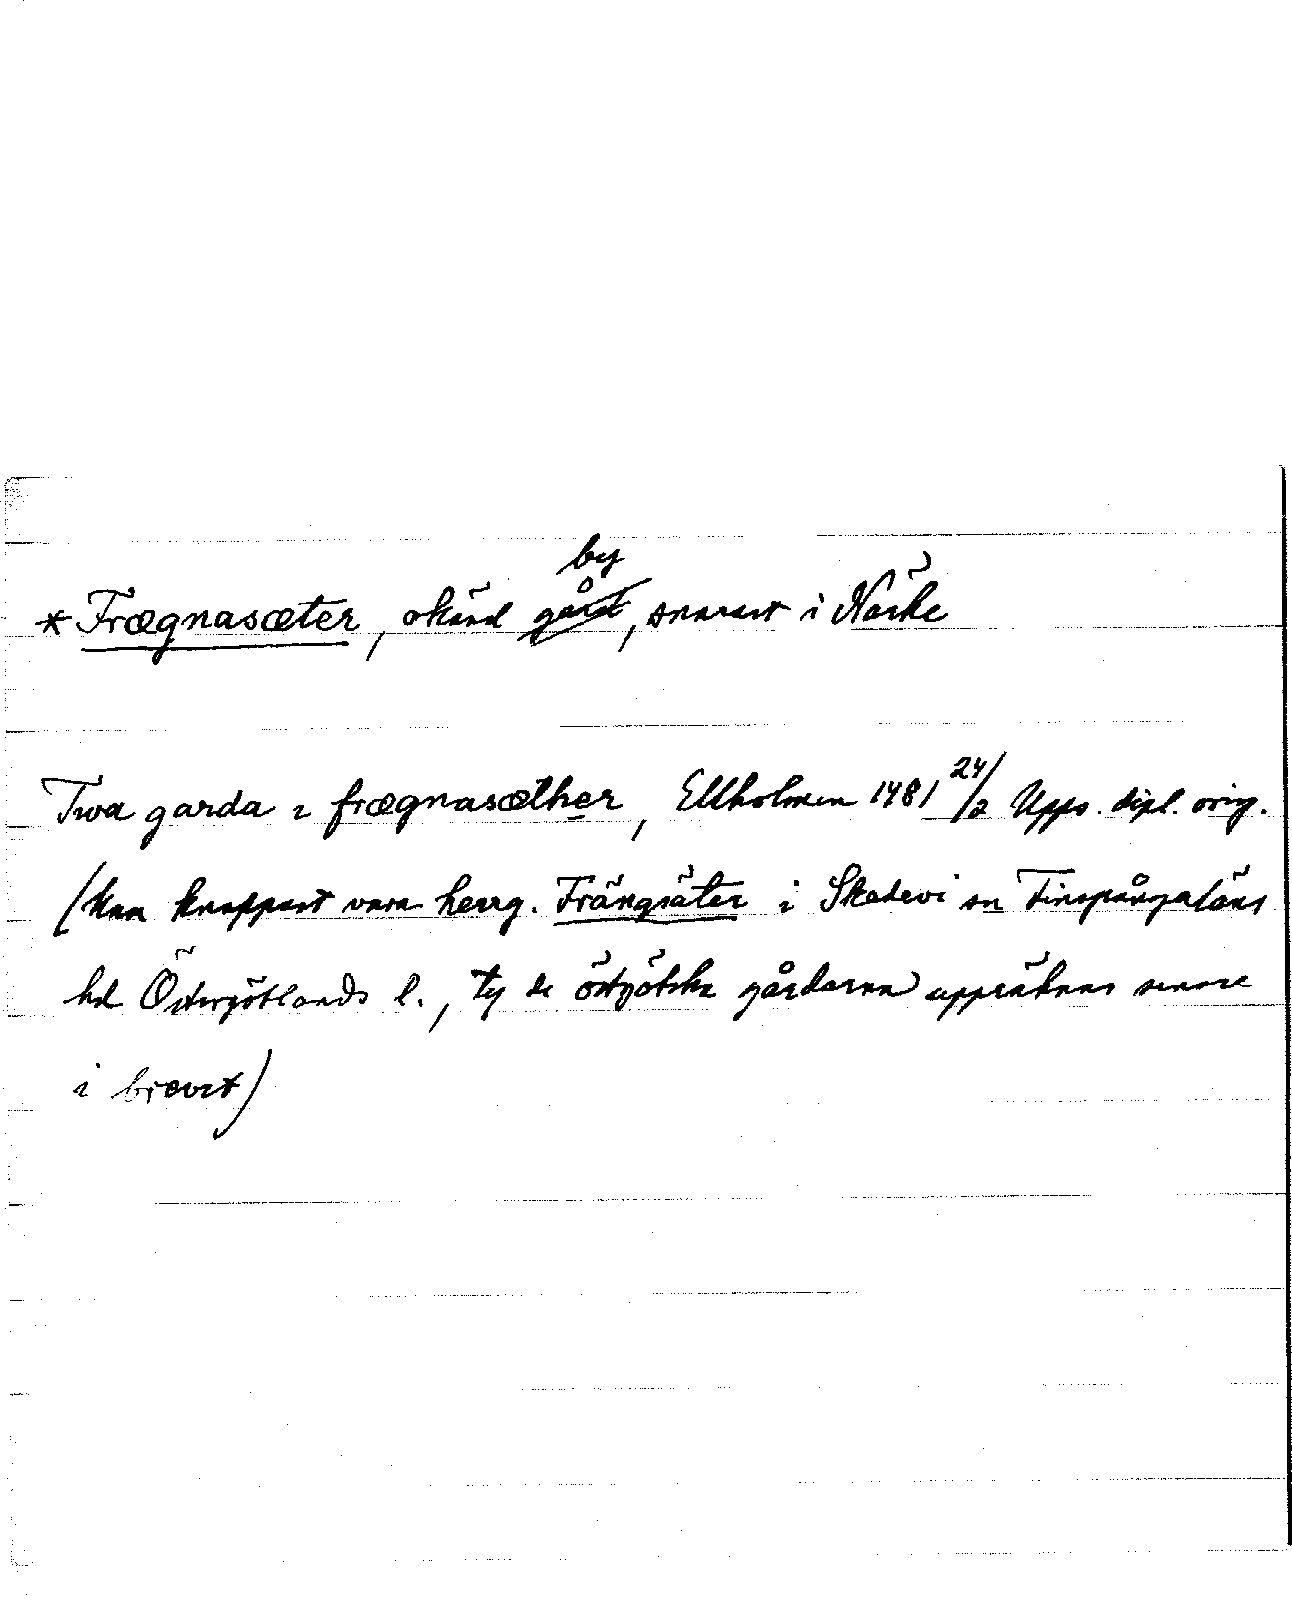 by
* Frægnasæter, okänd gård, snarast i Närke
Twa garda i frægnasæther, Ellholmen 1481 24/2 Upps. dipl. orig.
(kan knappast vara herrg. Frängsäter i Skedevi sn Finspångaläns
hd Östergötlands l., ty de östgötska gårdarna uppräknas senare
i brevet)